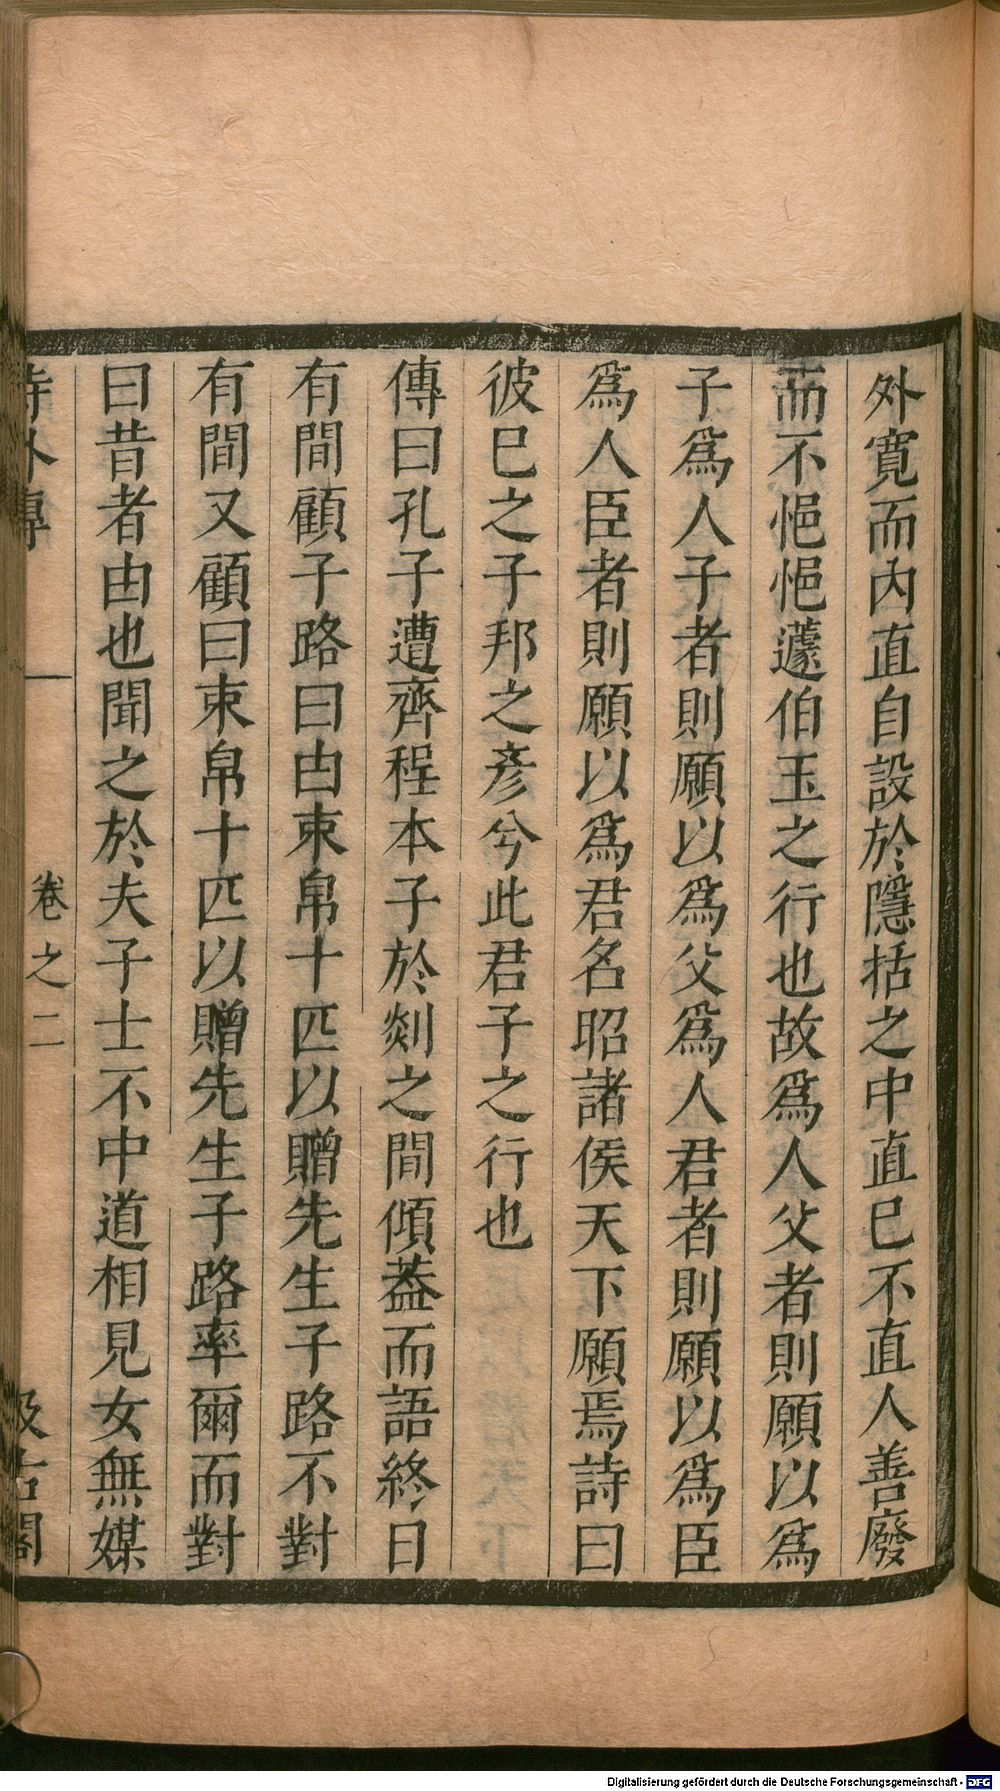 外寛而內直自設於隱括之中直巳不直人善廢
而不悒悒蘧伯玉之行也故爲人父者則願以爲
子爲人子者則願以爲父爲人君者則願以爲臣
爲人臣者則願以爲君名昭諸侯天下願焉詩曰
彼巳之子邦之彥兮此君子之行也
傳曰孔子遭齊程本子於剡之間傾葢而語終日
有間顧子路曰由束帛十匹以贈先生子路不對
有間又顧曰束帛十匹以贈先生子路率爾而對
曰昔者由也聞之於夫子士不中道相見女無媒
詩外傳 卷之二 汲古閣
Digitalisierung gefördert durch die Deutsche Forschungsgemeinschaft - DFG